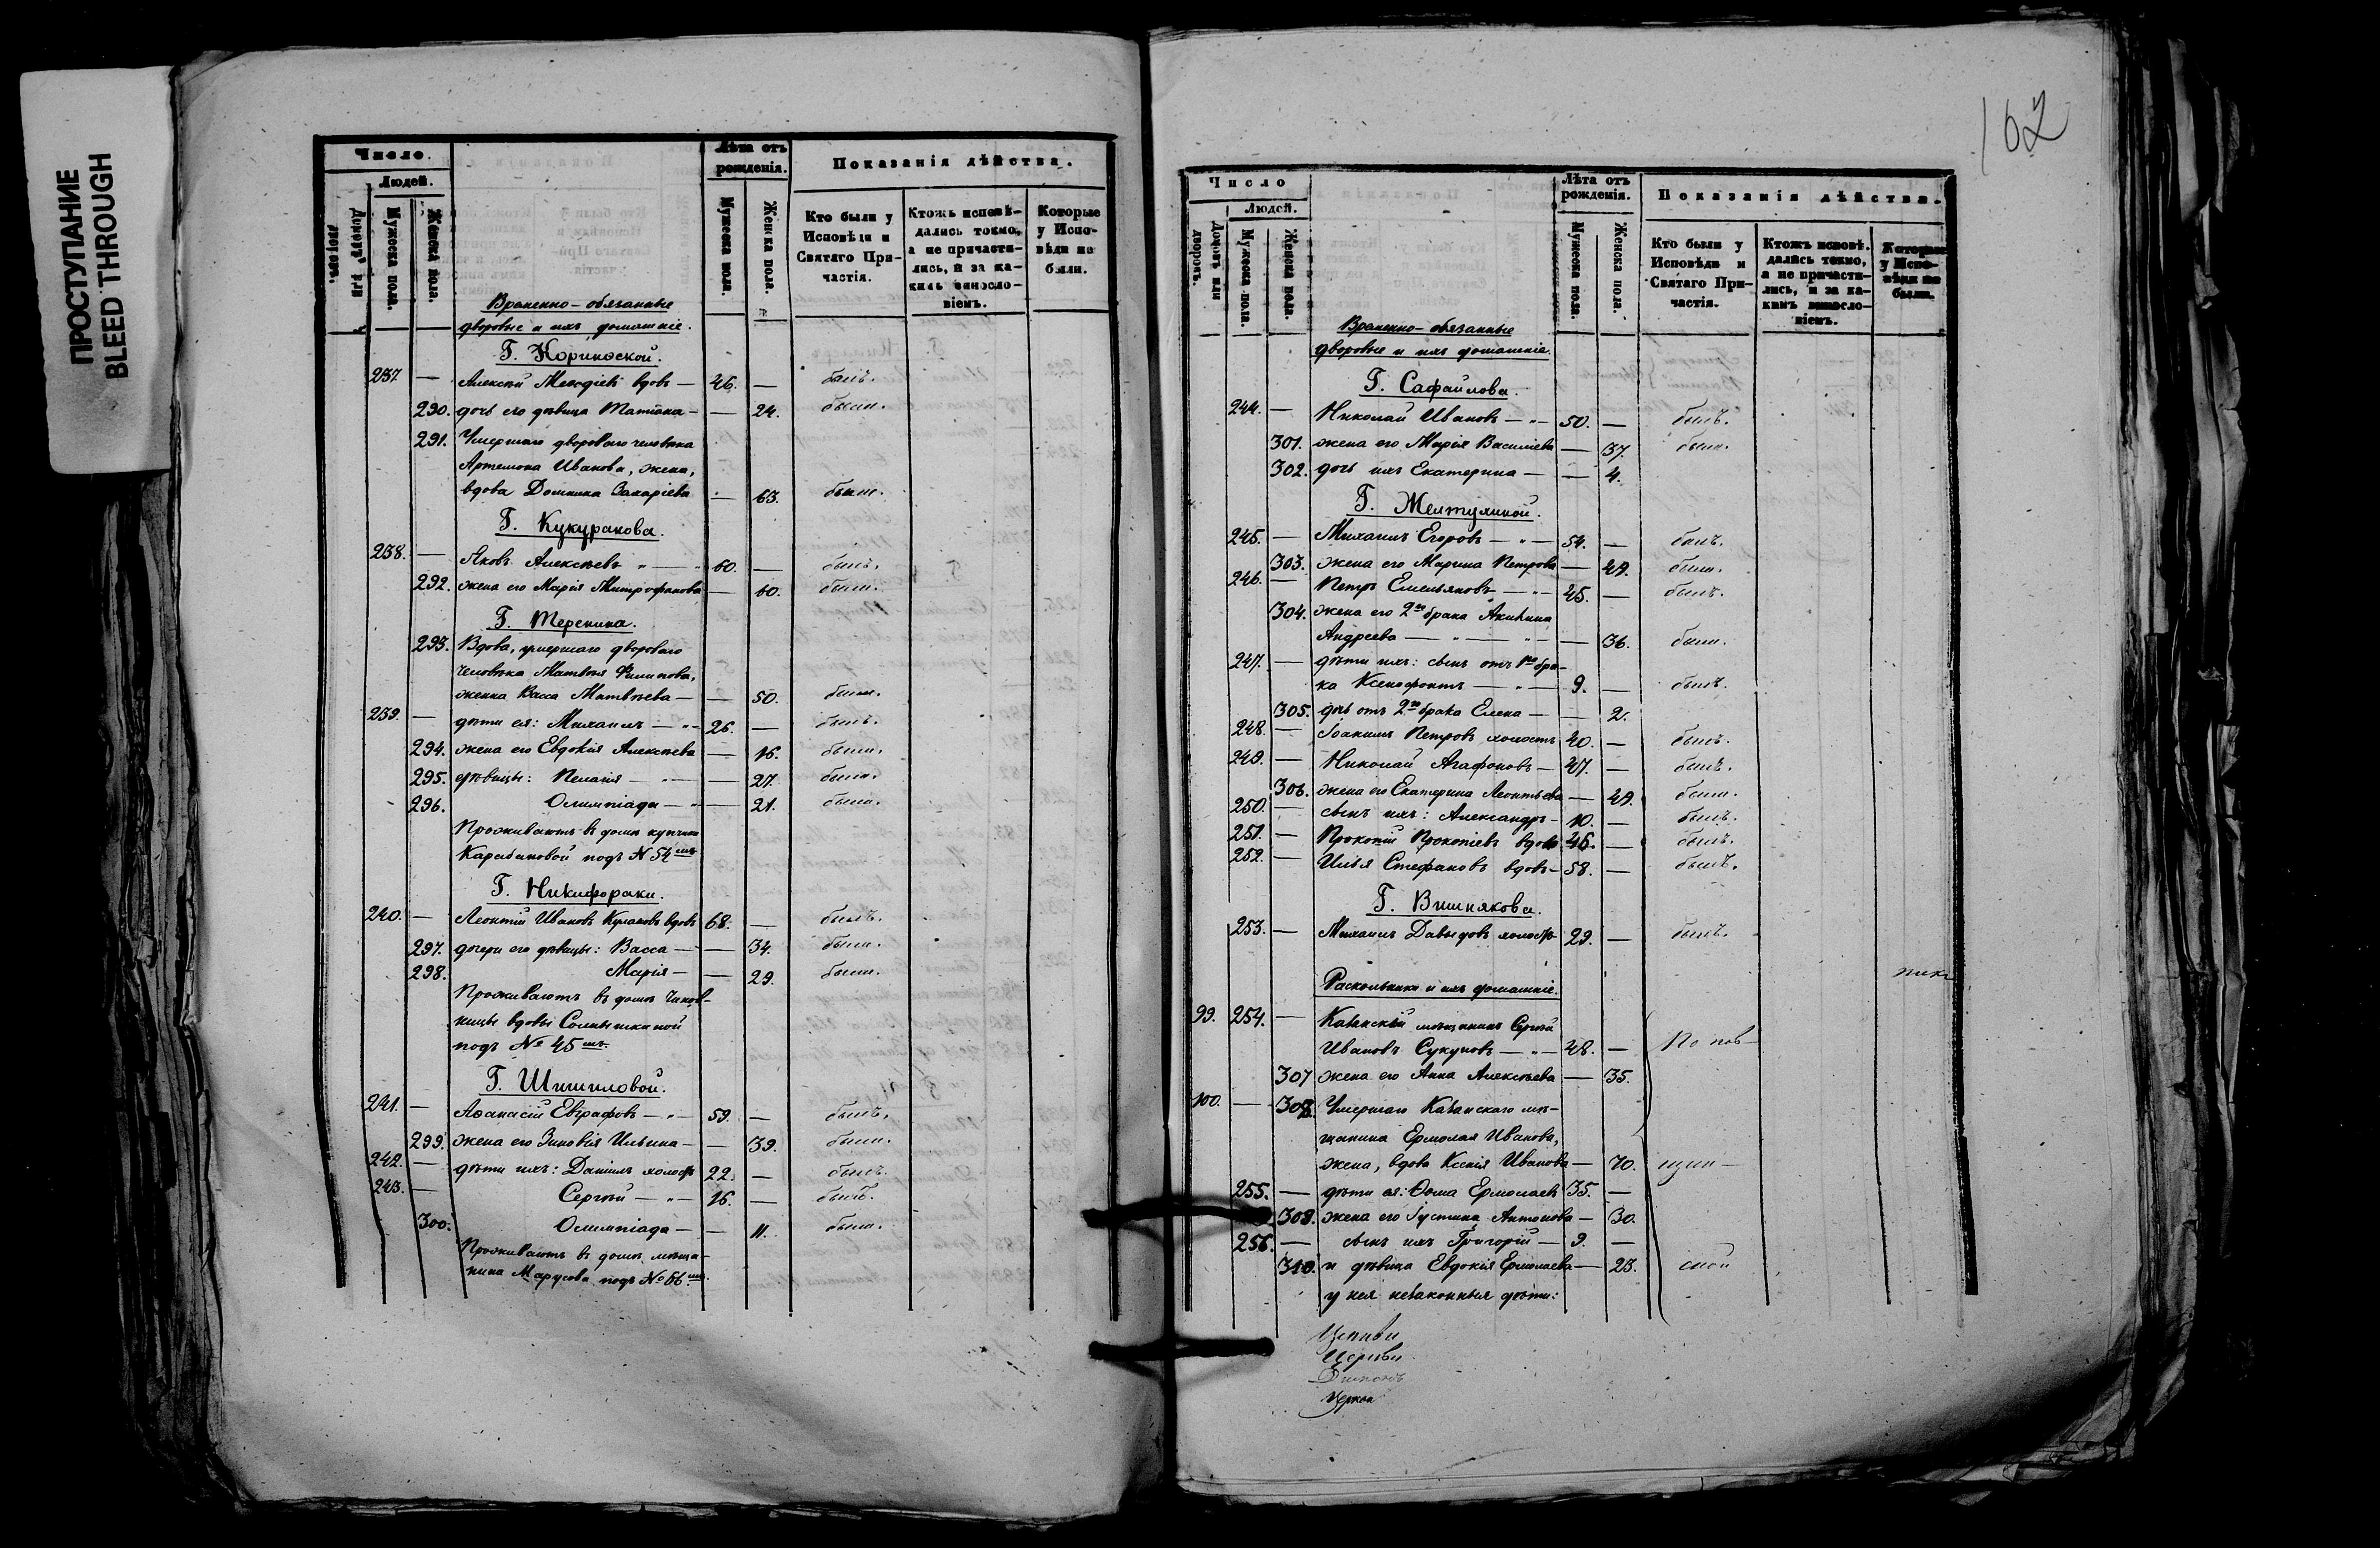 ПРОСТУПАНИЕ
BLEED THROUGH
Число.
Людей.
Домовъ или дворовъ.
Мужеска пола.
Женска пола.
Лѣта отъ рожденія.
Мужеска пола.
Женска пола.
Показанія дѣйства.
Кто были у Исповѣди и Святаго Причастія.
Ктожъ исповѣдались токмо, а не причастились, и за какимъ винословіемъ.
Которые у Исповѣди не были.
Временно-обязанные
дворовые и ихъ домашніе.
Г. Корин
237 — Алексѣй Меѳодіевъ вдовъ — 46. — былъ.
290. дочь его дѣвица Татіана — — 24. была.
291. Умершаго двороваго человѣка
Артемона Иванова, жена,
вдова Домника Захаріева — 63. была.
Г. Кукуранова.
238. — Яковъ Алексѣевъ „ — „ 60. — былъ.
292. жена его Марія Митрофанова — 60. была.
Г. Теренина.
293. Вдова, умершаго двороваго
человѣка Матвѣя Филипова,
женка Васса Матвѣева — — 50. была.
239. — дѣти ея: Михаилъ — „ — 26. — былъ.
294. жена его Евдокія Алексѣева — 16. была.
295. дѣвицы: Пелагія — „ — — 27. была.
296. Олимпіада — „ — 21. была.
Проживаютъ въ домѣ купчихи
Карабановой подъ № 54мъ
Г. Никифораки.
240. — Леонтій Ивановъ Кулаковъ вдовъ 68. — былъ.
297. дочери его дѣвицы: Васса — — 34. была.
298. Марія — — 29. была.
Проживаютъ въ домѣ Чинов-
ницы вдовы Солнышкиной
подъ № 45мъ.
Г. Шишиловой.
241. — Аѳанасій Евграфовъ — „ — 59. — былъ.
299. жена его Зиновія Ильина — — 39. была.
242. — дѣти ихъ: Даніилъ холостъ 22. — былъ.
243. — Сергѣй — „ — 16. — былъ.
300. Олимпіада — — 11. была.
Проживаютъ въ домѣ мѣща-
нина Марусова подъ № 66мъ.
162
Число
Людей.
Домовъ или дворовъ.
Мужеска пола.
Женска пола.
Лѣта отъ рожденія.
Мужеска пола.
Женска пола.
Показанія дѣйства.
Кто были у Исповѣди и Святаго Причастія.
Ктожъ исповѣдались токмо, а не причастились, и за какимъ винословіемъ.
Которые у Исповѣди не были.
Временно-обязанные
дворовые и ихъ домашніе.
Г. Сафайлова.
244. — Николай Ивановъ — „ — 50. — былъ.
301. жена его Марія Василіева — 37. была.
302. дочь ихъ Екатерина — — 4.
Г. Желтухиной.
245. — Михаилъ Егоровъ — „ — 54. — былъ.
303. жена его Марина Петрова — 49. была.
246. — Петръ Емельяновъ — „ — 45. — былъ.
304. жена его 2го брака Акилина
Андреева — „ — „ — — 36. была.
247. — дѣти ихъ: сынъ отъ 1го бра-
ка Ксенофонтъ — „ — 9. — былъ.
305. дочь отъ 2го брака Елена — — 2.
248. — Іоакимъ Петровъ холостъ 40. — былъ.
249. — Николай Агафоновъ — 47. — былъ.
306. жена его Екатерина Леонтьева — 49. была.
250. — сынъ ихъ: Александръ — 10. — былъ.
251. — Прокопій Прокопіевъ вдовъ 45. — былъ.
252. — Илья Стефановъ вдовъ — 58. — былъ.
Г. Вишнякова.
253. — Михаилъ Давыдовъ холостъ 29. — былъ.
Раскольники и ихъ домашніе.
99. 254. — Казанскій мѣщанинъ Сергѣй
Ивановъ Сукуновъ — „ — 48. — По пов-
307 жена его Анна Алексѣева — 35.
100. — 308. Умершаго Казанскаго мѣ-
щанина Ермолая Иванова,
жена, вдова Ксенія Иванова — 70. щин-
255. — дѣти ея: Ѳома Ермолаевъ 35. —
309. жена его Густина Антонова — 30.
256. — сынъ ихъ Григорій — 9. —
310. и дѣвица Евдокія Ермолаева — 23. ской
у нея незаконныя дѣти:
Церкви